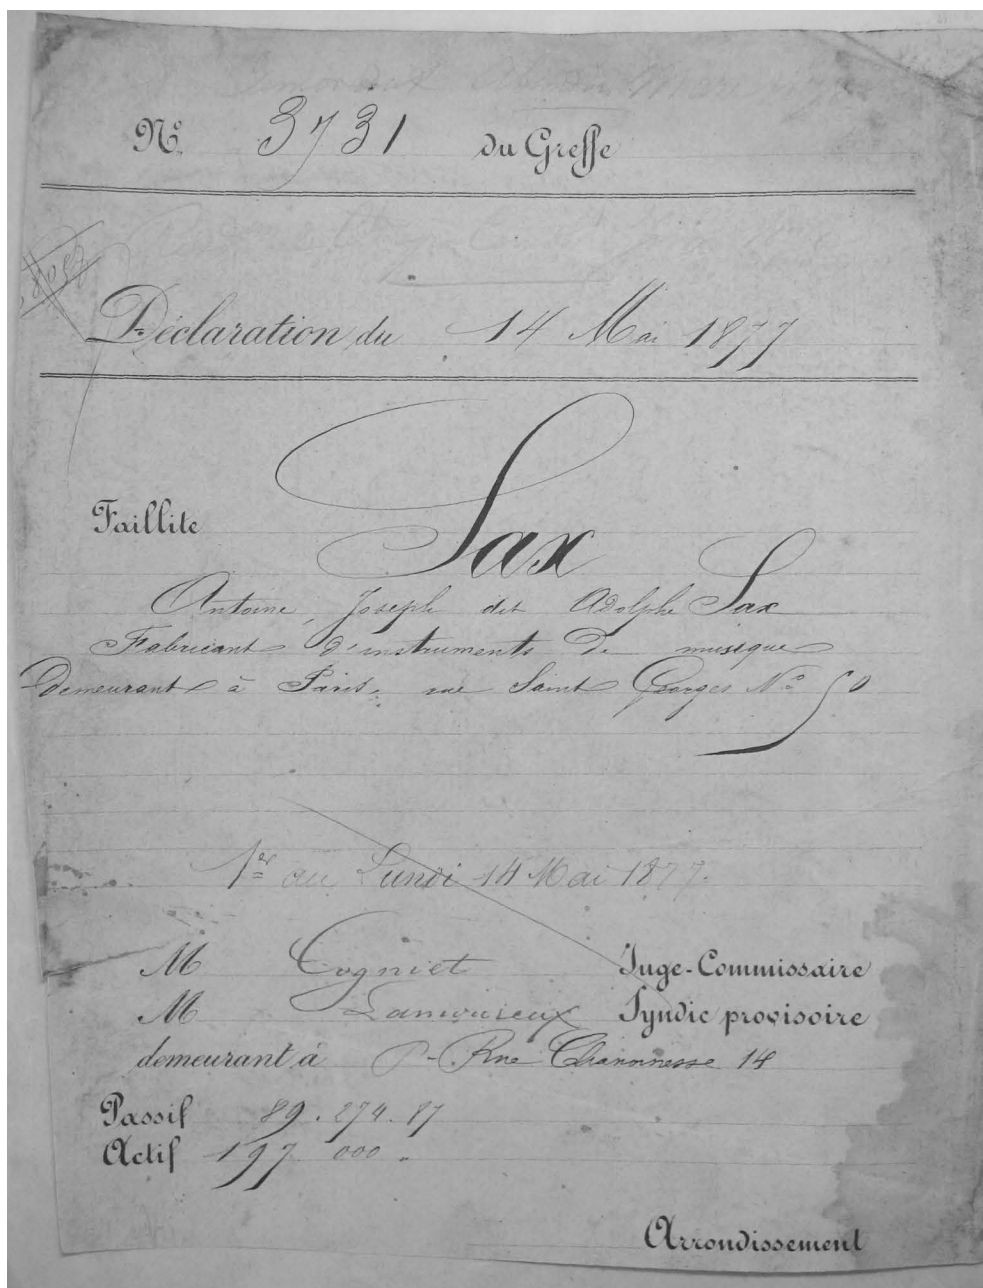 No. 3731 du Greffe
Déclaration du 14 Mai 1877
Faillite Sax
Antoine, Joseph dit Adolphe Sax
Fabricant d'instruments de musique
demeurant à Paris, rue Saint Georges No 50
1er au Lundi 14 Mai 1877.
M Cogniet Juge-Commissaire
M Lamoureux Syndic provisoire
demeurant à Rue Chanoinesse 14
Passif 89.274.87
Actif 197 000
Arrondissement